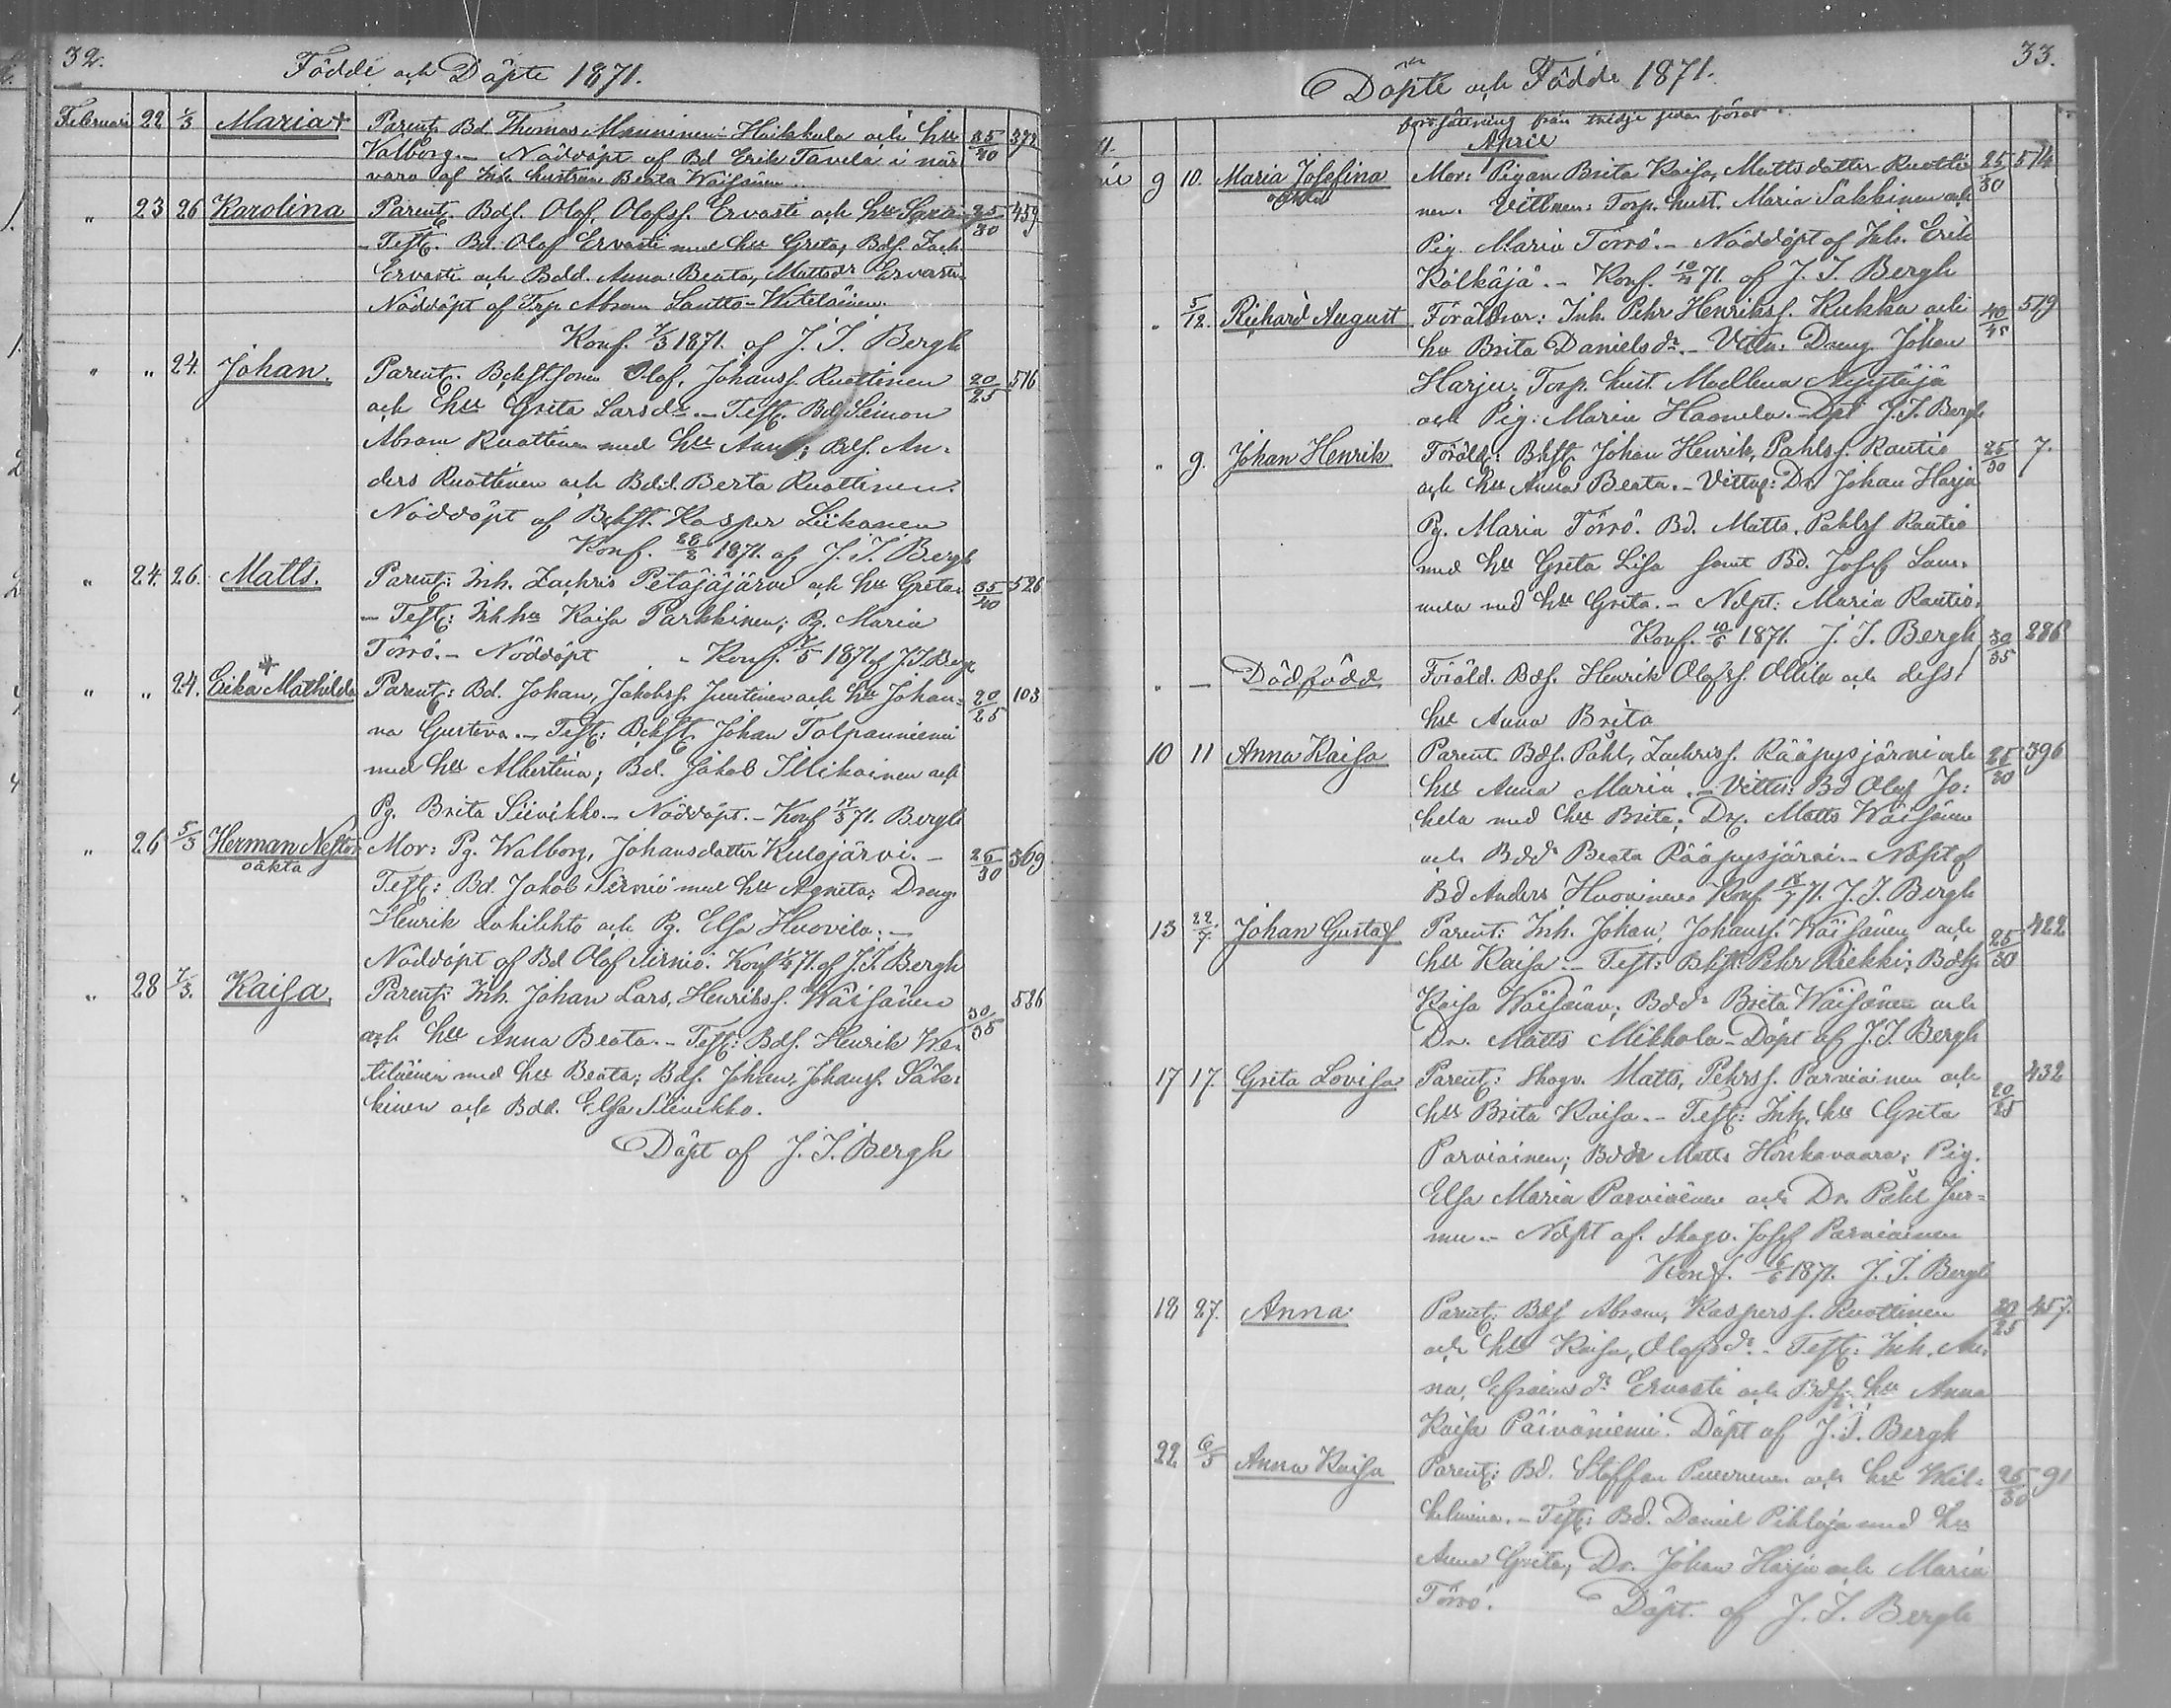 32.
Födde och Döpte 1871.
Februari 22 1/3 Maria + Parent. Bd. Thomas Manninen Haikkula och Hu 35/40 373
Valborg. – Nöddöpt af Bd Erik Tavela i när
varo af Inh. hustrun Beata Wäisänen.
" 23 26 Karolina Parent. Bdf. Olof Olofsf. Ervasti och Hu Sara 25/30 459
– Test. Bd. Olof Ervasti med Hu Greta, Bdf. Zach.
Ervasti och Bdd. Anna Beata, Mattsdr Ervasti
Nöddöpt af Trp. Abram Lautto-
Konf. 1871. af J. I. Bergh
" " 24. Johan. Parent. Olof, Johansf. Ruottinen 20/25 516
och Hu Greta Larsdr. – Test. Bd. Simon
Abram Ruottinen med Hu; Bdf. An-
ders Ruottinen och Bdd. Berta Ruottinen.
Nöddöpt af Bckft. Kasper Liikanen
Konf. 1871. af J. I. Bergh
" 24. 26. Matts. Parent: Inh. Zachris Petäjäjärvi och Hu Greta. 35/40 526
– Test: Kaisa Parkkinen; Pg. Maria
Törrö. – Nöddöpt – Konf. 1871 af J. I. Bergh
" " 24. Erika Mathilda + Parent: Bd. Johan, Jakobsf. Juntinen och Hu Johan- 20/25 103
na Gustava. – Test: Bckft. Johan Tolpanniemi
med Hu Albertina; Bd. Jakob Illikainen och
Pg. Brita Siivikko. – Nöddöpt. – Konf 71. Bergh
" 26 5/3 Herman Nestor Mor: Pg. Walborg, Johansdotter Kulojärvi. – 25/30 369
oäkta Test: Bd. Jakob Sirniö med Hu Agneta; Dreng
Henrik och Pg. Elsa Huovila; –
Nöddöpt af Bd Olof Sirniö. Konf 71. af J. I. Bergh
" 28 7/3. Kaisa. Parent: Inh. Johan Lars, Henriksf. Wäisänen 30/35 526
och Hu Anna Beata. – Test: Bdf. Henrik We-
teläinen med Hu Beata; Bdf. Johan, Johansf. Säk-
kinen och Bdd. Elsa Siivikko.
Döpt af J. I. Bergh
33.
Döpte och Födde 1871.
fortsättning från tredje sidan förut
April
9 10. Maria Josefina Mor: Pigan Brita Kaisa, Mattsdotter Ruotti- 25/30 514
oäkta nen. Vittnen: Torp. hust. Maria Säkkinen och
Pig. Maria Törrö. – Nöddöpt af Inh. Erik
Kälkäjä. – Konf. 10/4 71. af J. I. Bergh
" 5/12. Richard August Föräldrar: Inh. Pehr Henriksf. Kukka och 40/45 519
hu Brita Danielsdr. – Vittn: Dreng Johan
Harju; Torp. hust. Nyyttäjä
och Pig: Maria Haamela. – Dpt J. I. Bergh
" 9. Johan Henrik Föräld: Bkft. Johan Henrik, Pahlsf. Rautio 25/30 7.
och Hu Anna Beata. – Vittn: Dr. Johan Harju
Pg. Maria Törrö. Bd. Matts. Pahlsf Rautio
med Hu Greta Lisa samt Bd. Josef Lam-
mela med Hu Greta. – Ndpt: Maria Rautio.
Konf. 1871. J. I. Bergh
" – Dödfödd Föräld. Bdf. Henrik Olofsf. Ollila och dess 30/35 286
Hu Anna Brita
10 11 Anna Kaisa Parent. Bdf. Pahl, Zachrisf. Rääpysjärvi och 25/30 396
Hu Anna Maria. – Vittn: Bd Olof Jo-
kela med Hu Brita; Drg. Matts Wäisänen
och Bdd Beata Rääpysjärvi. – Ndpt af
Bd Anders Huovinen. Konf. 71. J. I. Bergh
13 22/7. Johan Gustaf Parent: Inh. Johan, Johansf. Wäisänen och 25/30 422
Hu Kaisa – Test: Bkft. Pehr Riekki;
Kaisa Wäisänen; Bdd. Brita Wäisänen och
Dr. Matts Mikkola – Döpt af J. I. Bergh
17 17. Greta Lovisa Parent: Skogv. Matts, Pehrsf. Parviainen och 20/25 432
Hu Brita Kaisa. – Test: Inh. Hu Greta
Parviainen; Matts Hörskavaara; Pig.
Elsa Maria Parviainen och Dr. Pahl Jur-
mu. – Ndpt af Skogv. Josef Parviainen
Konf. 1871. J. I. Bergh
18 27. Anna. Parent: Bdf Abram, Kaspersf. Ruottinen 20/25 457.
och Hu Kaisa, Olofsdr. – Test: Inh. An-
na, Efraimsdr Ervasti och Bdf. Hu Anna
Kaisa Päivänniemi. Döpt af J. I. Bergh
22 6/5 Anna Kaisa Parent: Bd. Staffan och Hu Wil- 25/30 91
helmina. – Test: Bd. Daniel Pihlaja med Hu
Anna Greta; Dr. Johan Harju och Maria
Törrö. Döpt. af J. I. Bergh